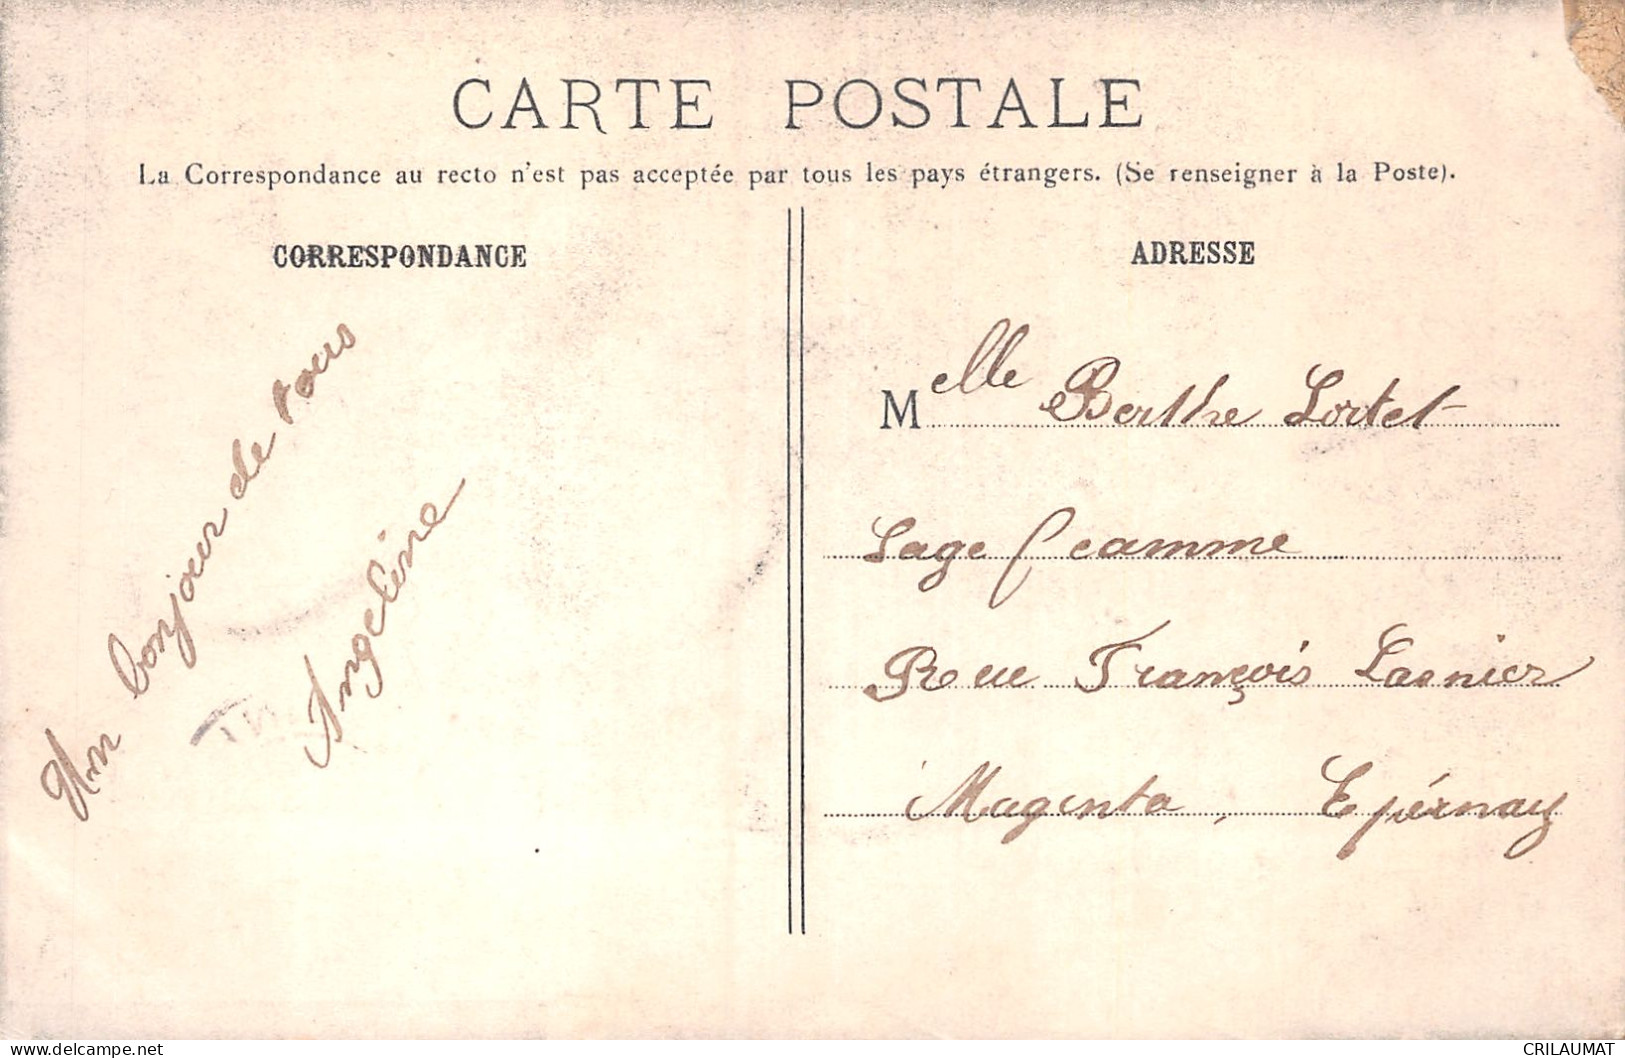 CARTE POSTALE
La Correspondance au recto n'est pas acceptée par tous les pays étrangers. (Se renseigner à la Poste).
CORRESPONDANCE
Un bonjour de tous
Angeline
ADRESSE
Melle Berthe Lortet
Sage feamme
Rue François Lasnier
Magenta, Epérnay
delcampe.net
CRILAUMAT